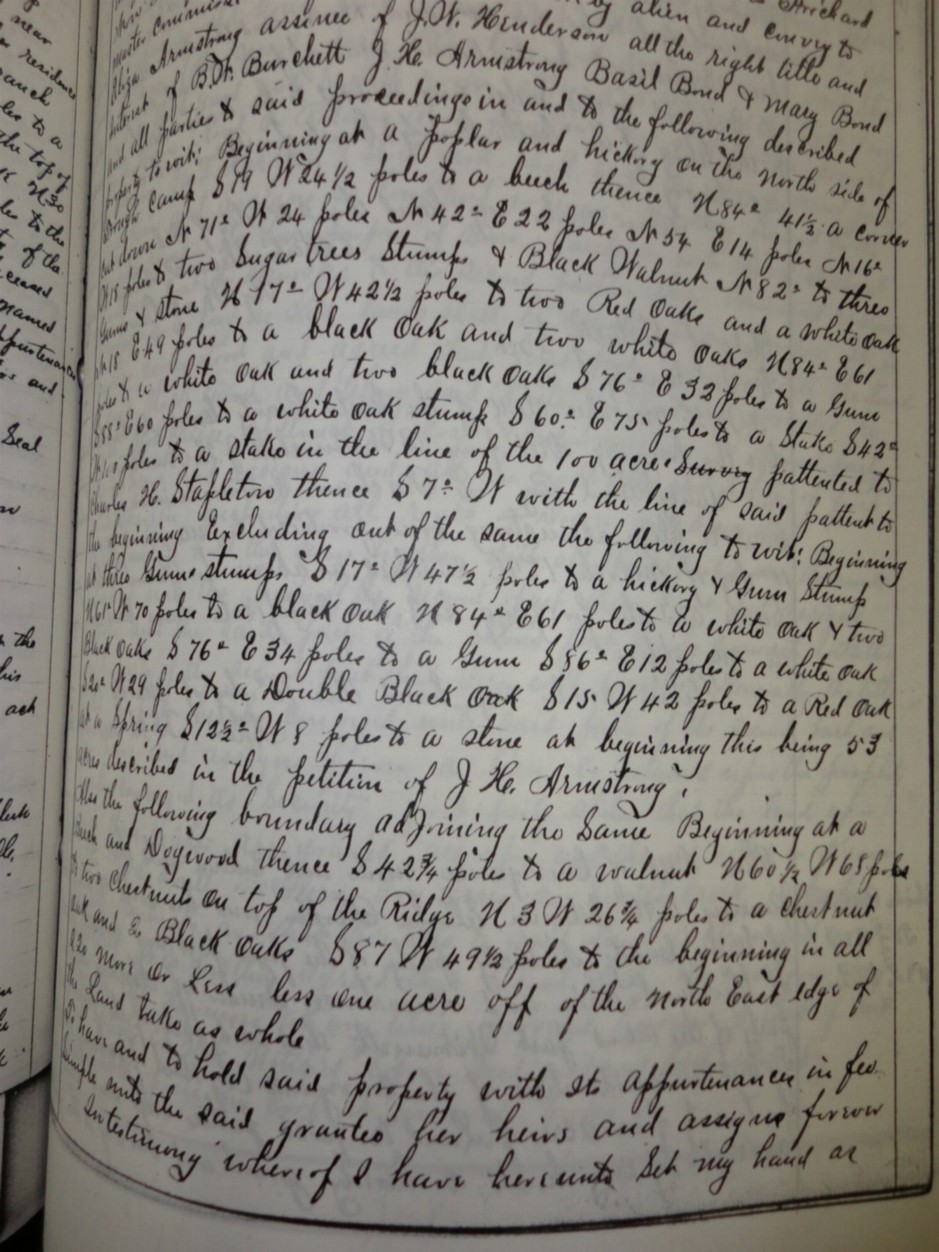 by alien and convey to
Eliza Armstrong assinee of J.W. Henderson all the right title and
interest of B.W. Burchett J.H. Armstrong Basil Bond & Mary Bond
and all parties to said proceedings in and to the following described
property to wit; Beginning at a poplar and hickory on the North side of
Camp S 79 W 24 1/2 poles to a beech thence N 84° 41 1/2 a corner
cut down N 71° W 24 poles N 42° E 22 poles N 54 E 14 poles N 16°
W 18 poles to two Sugar trees Stumps & Black Walnut N 82° to three
Gums & stone N 17° W 42 1/2 poles to two Red Oaks and a white oak
N 18 E 49 poles to a black oak and two white oaks N 84° E 61
poles to a white oak and two black oaks S 76° E 32 poles to a Gum
S 88° E 60 poles to a white oak stump S 60° E 75 poles to a Stake S 42°
poles to a stake in the line of the 100 acre Survey pattented to
Charles H. Stapleton thence S 7° W with the line of said pattent to
the beginning Excluding out of the same the following to wit; Beginning
at three Gum stumps S 17° W 47 1/2 poles to a hickory & Gum Stump
N 61° W 70 poles to a black oak N 84° E 61 poles to a white oak & two
Black Oaks S 76° E 34 poles to a Gum S 86° E 12 poles to a white oak
S 20° W 29 poles to a Double Black Oak S 15 W 42 poles to a Red Oak
at a Spring S 12 1/2° W 8 poles to a stone at beginning this being 53
acres described in the petition of J H. Armstrong,
Also the following boundary adjoining the Same Beginning at a
Beech and Dogwood thence S 42 3/4 poles to a walnut N 60 1/2 W 68 poles
to two chestnuts on top of the Ridge N 3 W 26 3/4 poles to a chestnut
oak and 2 Black Oaks S 87 W 49 1/2 poles to the beginning in all
120 more or less less one acre off of the North East edge of
the Land take as whole
To have and to hold said property with its appurtenances in fee
simple unto the said grantee her heirs and assigns forever
Intestimony whereof I have hereunto Set my hand as